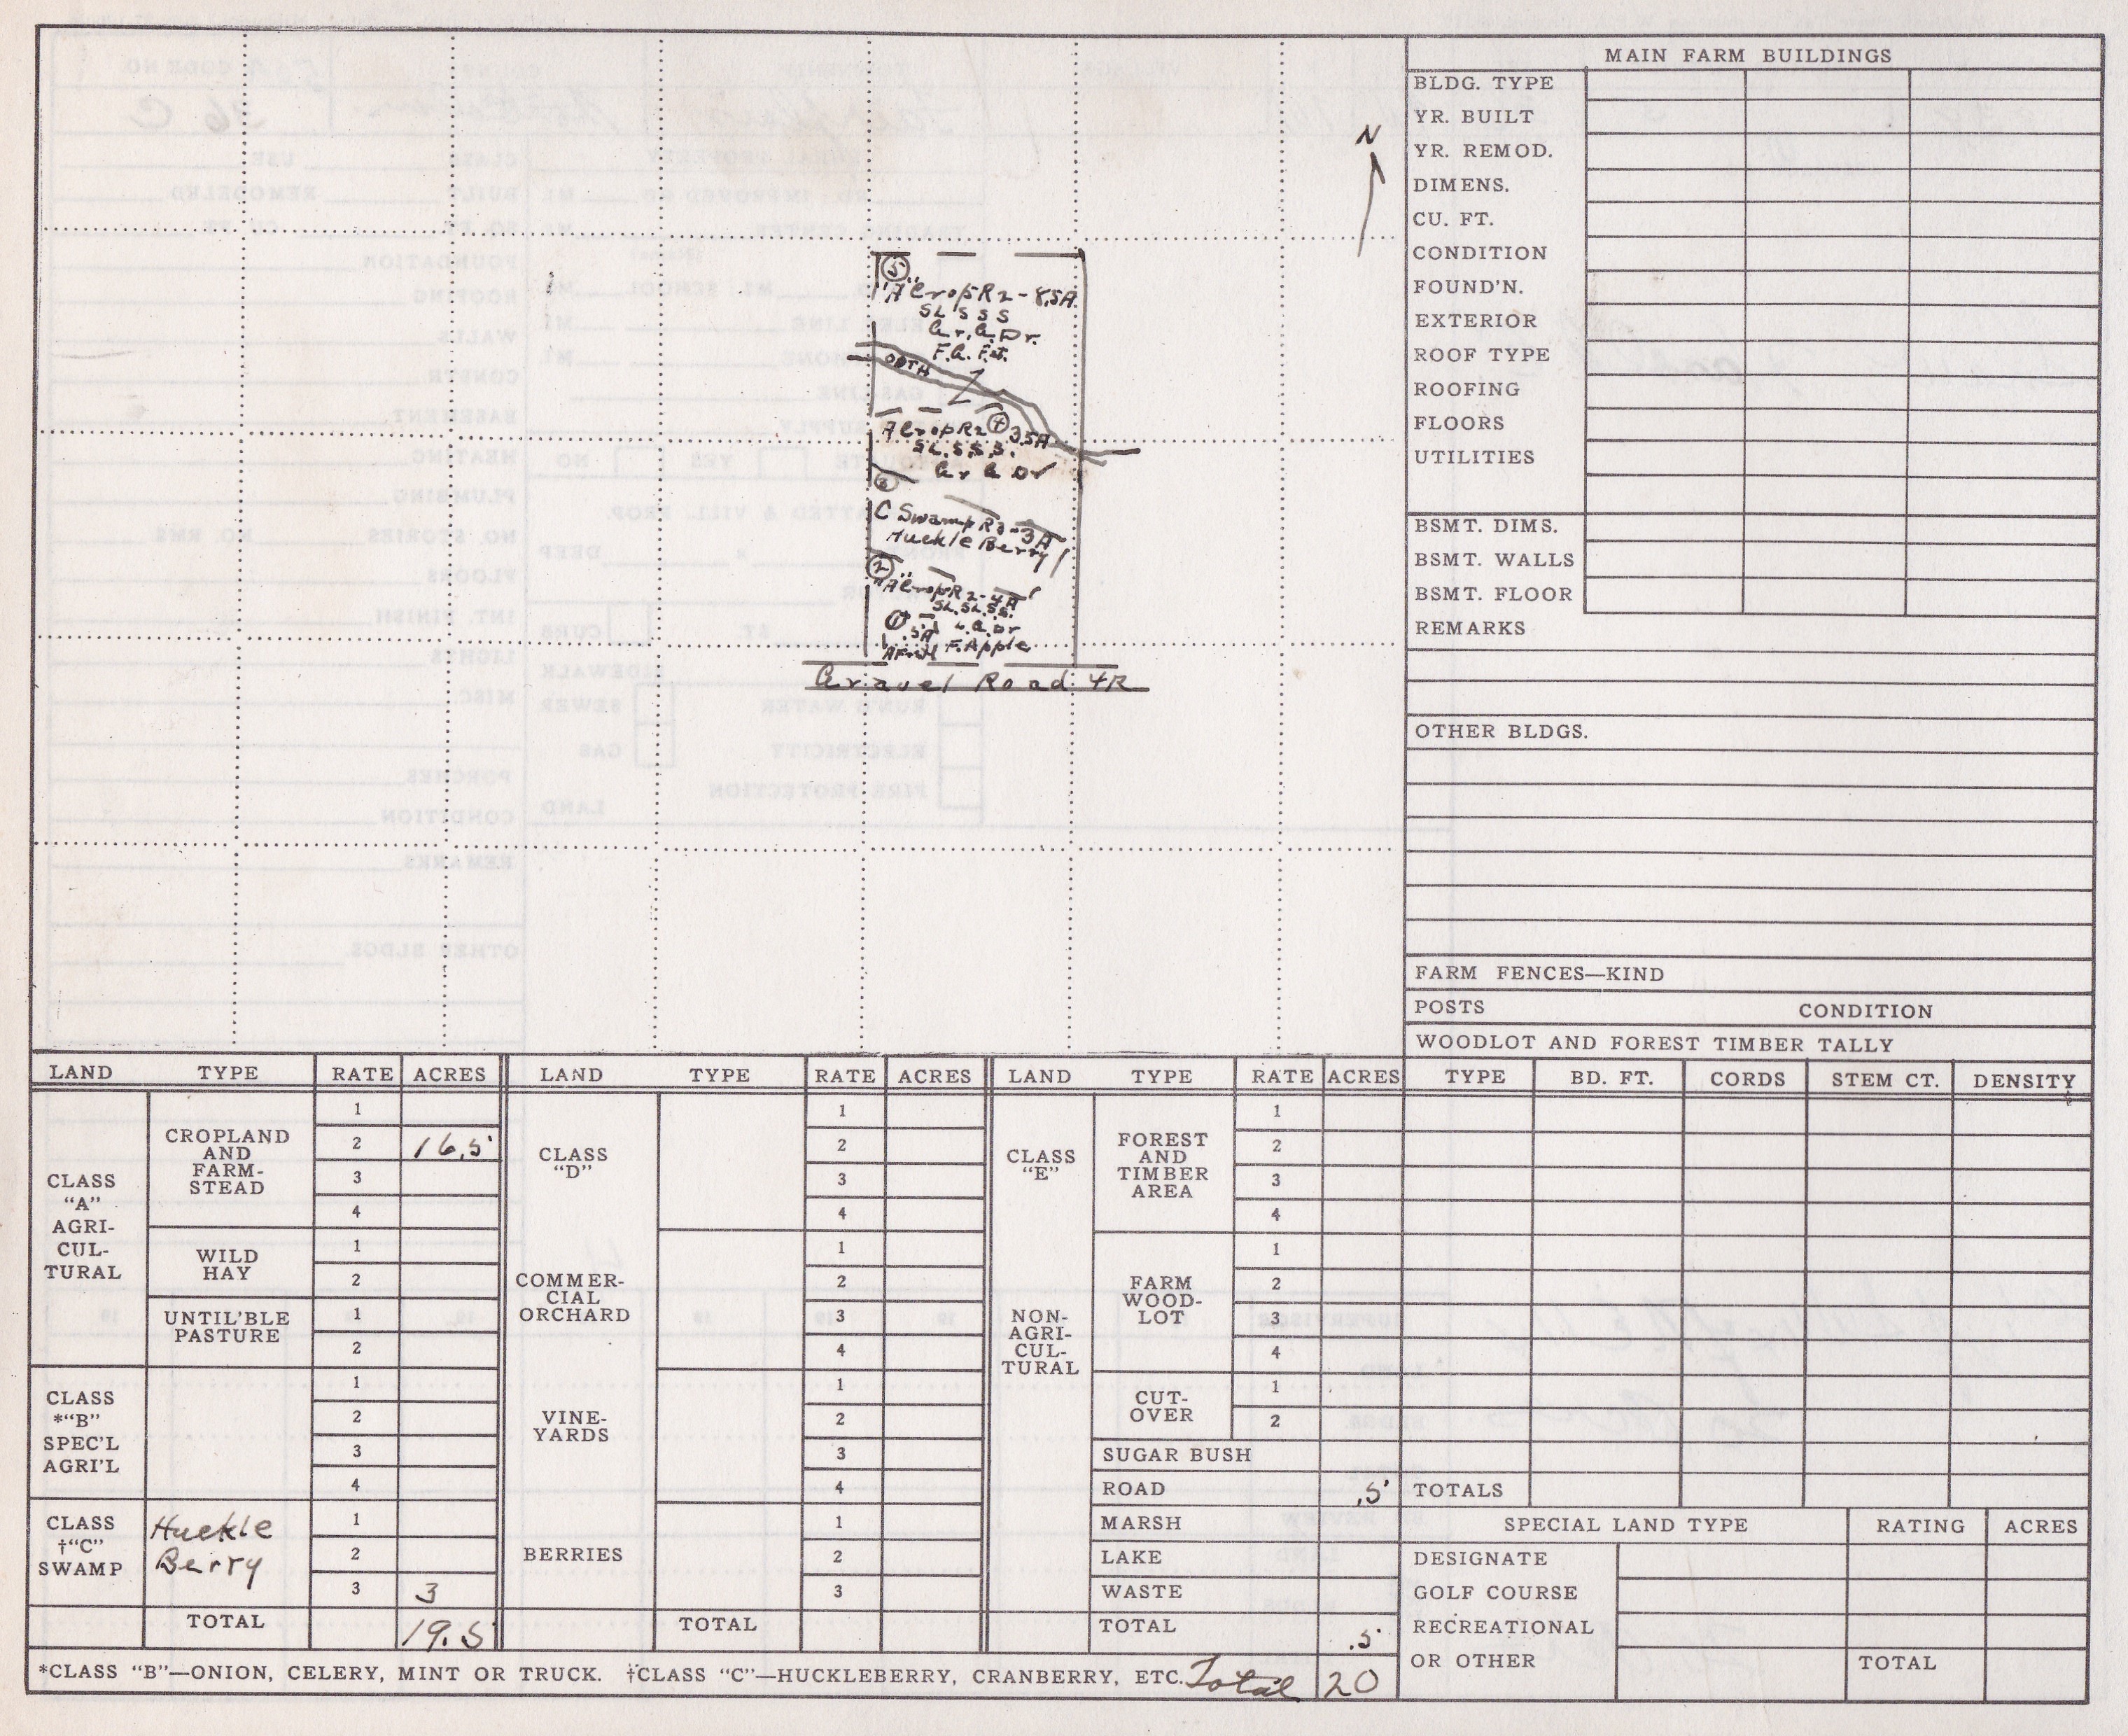 N
5
"A" Crop R2 - 8.5A
SL S S S
Gr. C. Dr.
F.C. F.t.
DITH
Z
4
A Crop R2 3.5A
SL. S.S.S.
Gr C Dr
3
C Swamp R3 - 3A
Huckle Berry
2
"A" Crop R2 - 4A
SL. SL. S.S.
1
.5A
F. Apple
Gravel Road 4R
MAIN FARM BUILDINGS
BLDG. TYPE
YR. BUILT
YR. REMOD.
DIMENS.
CU. FT.
CONDITION
FOUND'N.
EXTERIOR
ROOF TYPE
ROOFING
FLOORS
UTILITIES
BSMT. DIMS.
BSMT. WALLS
BSMT. FLOOR
REMARKS
OTHER BLDGS.
FARM FENCES—KIND
POSTS CONDITION
WOODLOT AND FOREST TIMBER TALLY
TYPE BD. FT. CORDS STEM CT. DENSITY
TOTALS
SPECIAL LAND TYPE RATING ACRES
DESIGNATE
GOLF COURSE
RECREATIONAL
OR OTHER TOTAL
LAND TYPE RATE ACRES
CLASS
"A"
AGRI-
CUL-
TURAL
CROPLAND
AND
FARM-
STEAD
1
2 16.5
3
4
WILD
HAY
1
2
UNTIL'BLE
PASTURE
1
2
CLASS
*"B"
SPEC'L
AGRI'L
1
2
3
4
CLASS
†"C"
SWAMP
Huckle
Berry
1
2
3 3
TOTAL 19.5
LAND TYPE RATE ACRES
CLASS
"D"
1
2
3
4
COMMER-
CIAL
ORCHARD
1
2
3
4
VINE-
YARDS
1
2
3
4
BERRIES
1
2
3
TOTAL
LAND TYPE RATE ACRES
CLASS
"E"
NON-
AGRI-
CUL-
TURAL
FOREST
AND
TIMBER
AREA
1
2
3
4
FARM
WOOD-
LOT
1
2
3
4
CUT-
OVER
1
2
SUGAR BUSH
ROAD .5
MARSH
LAKE
WASTE
TOTAL .5
*CLASS "B"—ONION, CELERY, MINT OR TRUCK. †CLASS "C"—HUCKLEBERRY, CRANBERRY, ETC. Total 20